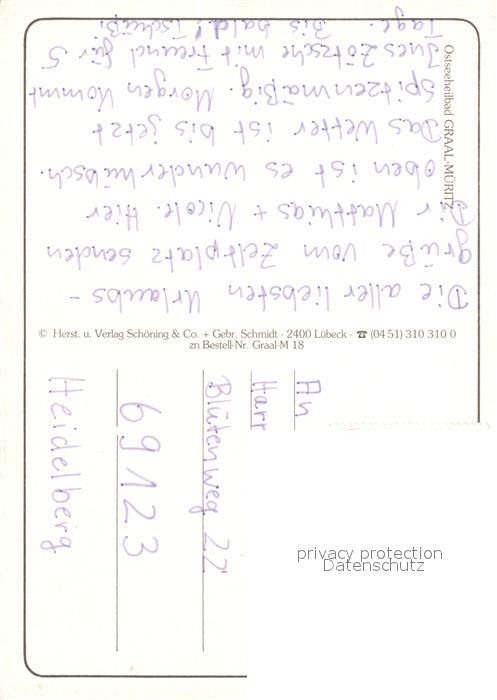 Die aller liebsten Urlaubs-
grüße vom Zeltplatz senden
Dir Matthias + Nicole. Hier
oben ist es wunderhübsch.
Das Wetter ist bis jetzt
spitzenmäßig. Morgen kommt
Ines Zötzsche mit Freund für 5
Tage. Bis bald! Tschüß.
Ostseeheilbad GRAAL-MÜRITZ
© Herst. u. Verlag Schöning & Co. + Gebr. Schmidt · 2400 Lübeck · ☎ (04 51) 310 310 0
zn Bestell-Nr. Graal-M 18
An
Harr
Blütenweg 22
69123
Heidelberg
privacy protection
Datenschutz